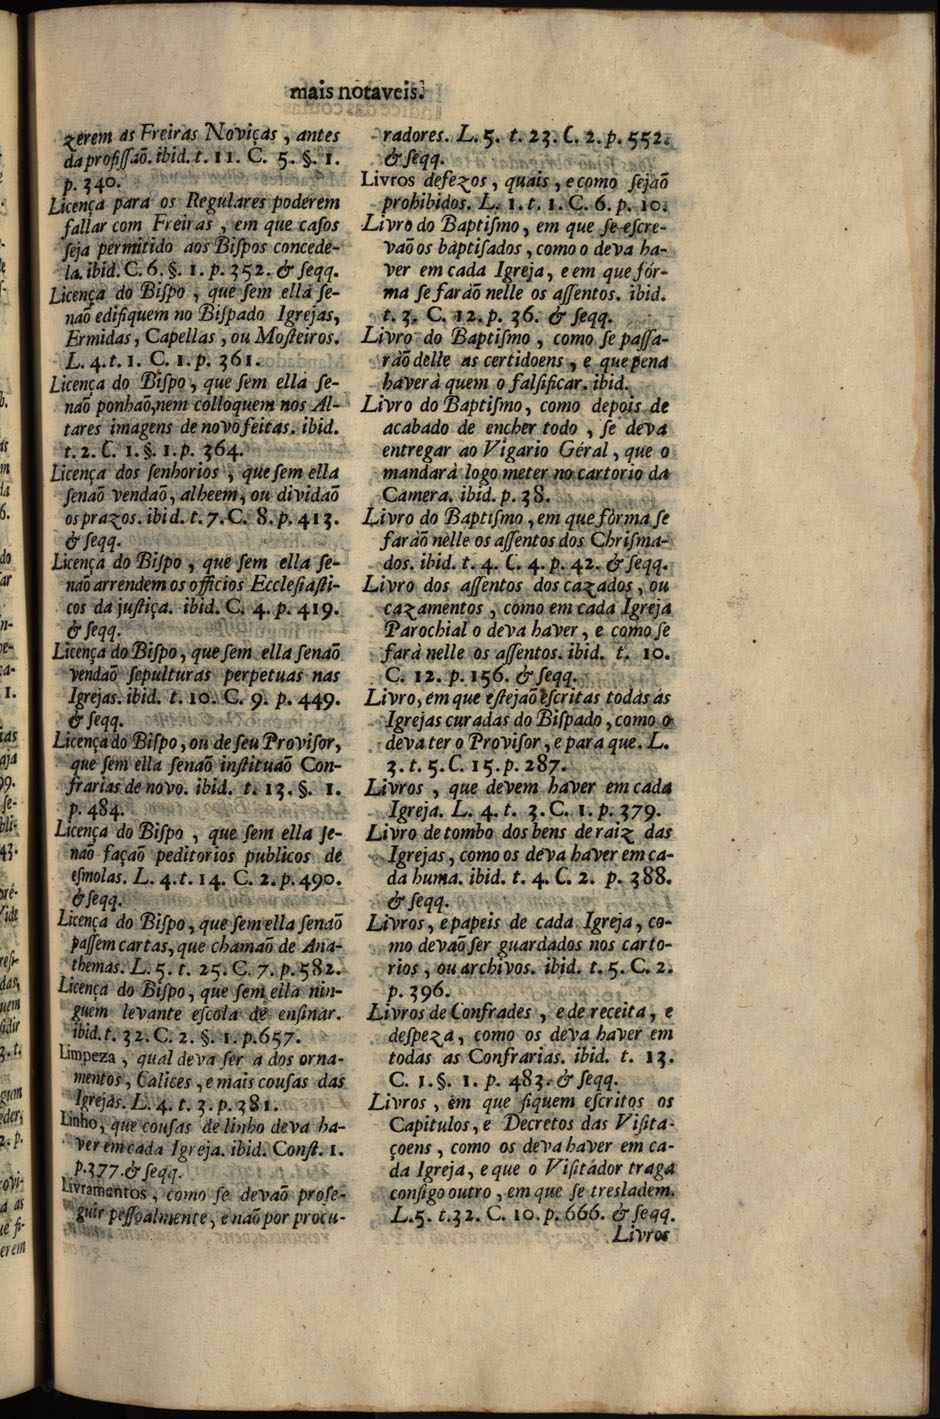 mais notaveis.
zerem as Freiras Noviças, antes
da profissaõ. ibid. t. 11. C. 5. §. 1.
p. 340.
Licença para os Regulares poderem
fallar com Freiras, em que casos
seja permitido aos Bispos concede-
la. ibid. C. 6. §. 1. p. 352. & seqq.
Licença do Bispo, que sem ella se-
naõ edifiquem no Bispado Igrejas,
Ermidas, Capellas, ou Mosteiros.
L. 4. t. 1. C. 1. p. 361.
Licença do Bispo, que sem ella se-
naõ ponhaõ, nem colloquem nos Al-
tares imagens de novo feitas. ibid.
t. 2. C. 1. §. 1. p. 364.
Licença dos senhorios, que sem ella
senaõ vendaõ, alheem, ou dividaõ
os prazos. ibid. t. 7. C. 8. p. 413.
& seqq.
Licença do Bispo, que sem ella se-
naõ arrendem os officios Ecclesiasti-
cos da justiça. ibid. C. 4. p. 419.
& seqq.
Licença do Bispo, que sem ella senaõ
vendaõ sepulturas perpetuas nas
Igrejas. ibid. t. 10. C. 9. p. 449.
& seqq.
Licença do Bispo, ou de seu Provisor,
que sem ella senaõ instituaõ Con-
frarias de novo. ibid. t. 13. §. 1.
p. 484.
Licença do Bispo, que sem ella se-
naõ façaõ peditorios publicos de
esmolas. L. 4. t. 14. C. 2. p. 490.
& seqq.
Licença do Bispo, que sem ella senaõ
passem cartas, que chamaõ de Ana-
themas. L. 5. t. 25. C. 7. p. 582.
Licença do Bispo, que sem ella nin-
guem levante escola de ensinar.
ibid. t. 32. C. 2. §. 1. p. 657.
Limpeza, qual deva ser a dos orna-
mentos, Calices, e mais cousas das
Igrejas. L. 4. t. 3. p. 381.
Linho, que cousas de linho deva ha-
ver em cada Igreja. ibid. Const. 1.
p. 377. & seqq.
Livramentos, como se devaõ prose-
guir pessoalmente, e naõ por procu-
radores. L. 5. t. 23. C. 2. p. 552.
& seqq.
Livros defezos, quais, e como sejaõ
prohibidos. L. 1. t. 1. C. 6. p. 10.
Livro do Baptismo, em que se escre-
vaõ os baptisados, como o deva ha-
ver em cada Igreja, e em que fór-
ma se faraõ nelle os assentos. ibid.
t. 3. C. 12. p. 36. & seqq.
Livro do Baptismo, como se passa-
ráõ delle as certidoens, e que pena
haverà quem o falsificar. ibid.
Livro do Baptismo, como depois de
acabado de encher todo, se deva
entregar ao Vigario Géral, que o
mandarà logo meter no cartorio da
Camera. ibid. p. 38.
Livro do Baptismo, em que fòrma se
faraõ nelle os assentos dos Chrisma-
dos. ibid. t. 4. C. 4. p. 42. & seqq.
Livro dos assentos dos cazados, ou
cazamentos, como em cada Igreja
Parochial o deva haver, e como se
farà nelle os assentos. ibid. t. 10.
C. 12. p. 156. & seqq.
Livro, em que estejaõ escritas todas as
Igrejas curadas do Bispado, como o
deva ter o Provisor, e para que. L.
3. t. 5. C. 15. p. 287.
Livros, que devem haver em cada
Igreja. L. 4. t. 3. C. 1. p. 379.
Livro de tombo dos bens de raiz das
Igrejas, como os deva haver em ca-
da huma. ibid. t. 4. C. 2. p. 388.
& seqq.
Livros, e papeis de cada Igreja, co-
mo devaõ ser guardados nos carto-
rios, ou archivos. ibid. t. 5. C. 2.
p. 396.
Livros de Confrades, e de receita, e
despeza, como os deva haver em
todas as Confrarias. ibid. t. 13.
C. 1. §. 1. p. 483. & seqq.
Livros, em que fiquem escritos os
Capitulos, e Decretos das Visita-
çoens, como os deva haver em ca-
da Igreja, e que o Visitador traga
consigo outro, em que se tresladem.
L. 5. t. 32. C. 10. p. 666. & seqq.
Livros